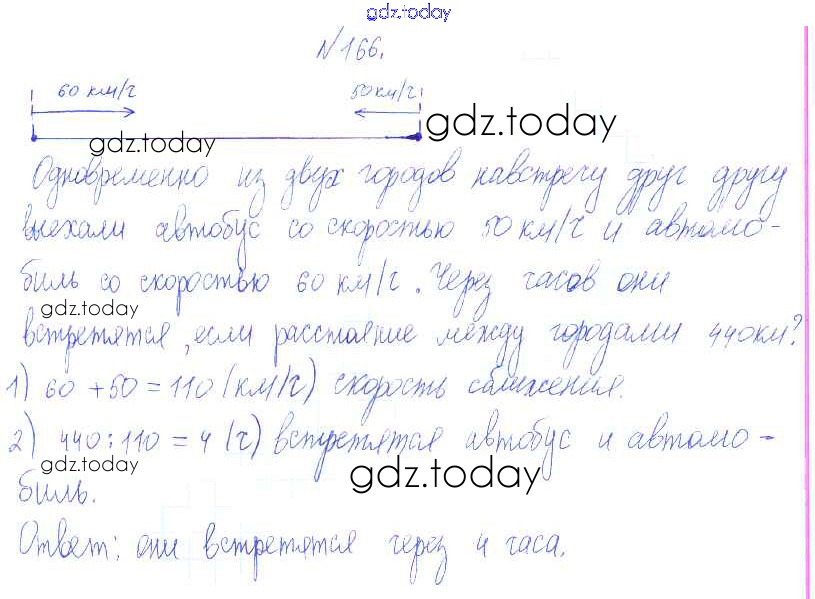 gdz.today
№166.
60 км/ч 50 км/ч
gdz.today gdz.today
Одновременно из двух городов навстречу друг другу
выехали автобус со скоростью 50 км/ч и автомо-
биль со скоростью 60 км/ч. Через часов они
gdz.today
встретятся, если расстояние между городами 440 км?
1) 60 + 50 = 110 (км/ч) скорость сближения.
2) 440 : 110 = 4 (ч) встретятся автобус и автомо-
gdz.today gdz.today
биль.
Ответ: они встретятся через 4 часа.